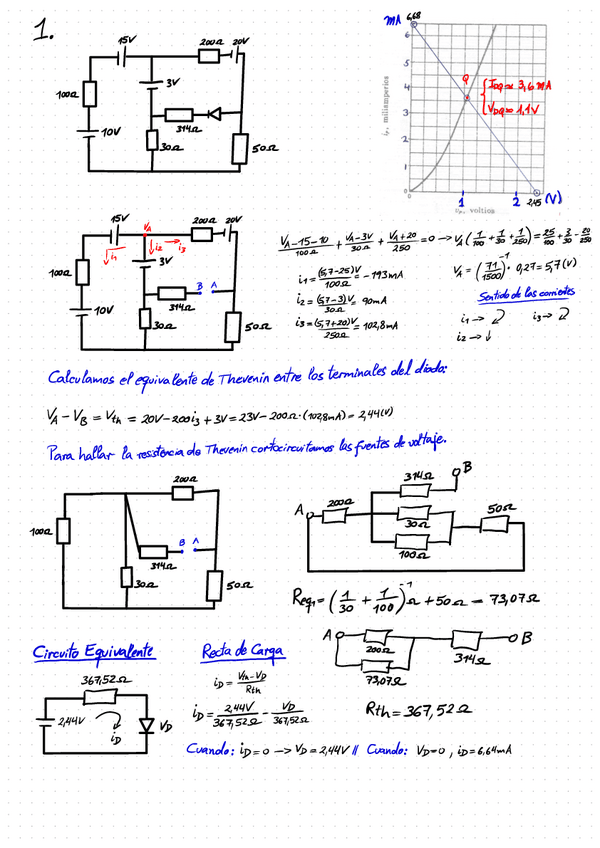 1.
15V
200Ω
20V
3V
100Ω
314Ω
10V
30Ω
50Ω
mA
6,68
6
5
4
3
2
1
0
Q
IDQ ≈ 3,6 mA
VDQ ≈ 1,1V
iF, miliamperios
1
2
2,45
(V)
vF, voltios
15V
VA
200Ω
20V
i1
i2
i3
3V
100Ω
B
A
314Ω
10V
30Ω
50Ω
(VA-15-10)/100Ω + (VA-3V)/30Ω + (VA+20)/250 = 0 → VA(1/100 + 1/30 + 1/250) = 25/100 + 3/30 - 20/250
i1 = (5,7-25)V/100Ω = -193mA
VA = (71/1500)⁻¹ · 0,27 = 5,7(V)
i2 = (5,7-3)V/30Ω = 90mA
Sentido de las corrientes
i3 = (5,7+20)V/250Ω = 102,8mA
i1 →
i3 →
i2 → ↓
Calculamos el equivalente de Thevenin entre los terminales del diodo:
VA - VB = Vth = 20V - 200i3 + 3V = 23V - 200Ω·(102,8mA) = 2,44(V)
Para hallar la resistencia de Thevenin cortocircuitamos las fuentes de voltaje.
200Ω
100Ω
B
A
314Ω
30Ω
50Ω
B
314Ω
A
200Ω
50Ω
30Ω
100Ω
Req1 = (1/30 + 1/100)⁻¹ Ω + 50Ω = 73,07Ω
A
200Ω
B
314Ω
73,07Ω
Rth = 367,52Ω
Circuito Equivalente
367,52Ω
2,44V
iD
VD
Recta de Carga
iD = (Vth-VD)/Rth
iD = 2,44V/367,52Ω - VD/367,52Ω
Cuando: iD=0 → VD=2,44V // Cuando: VD=0, iD=6,64mA